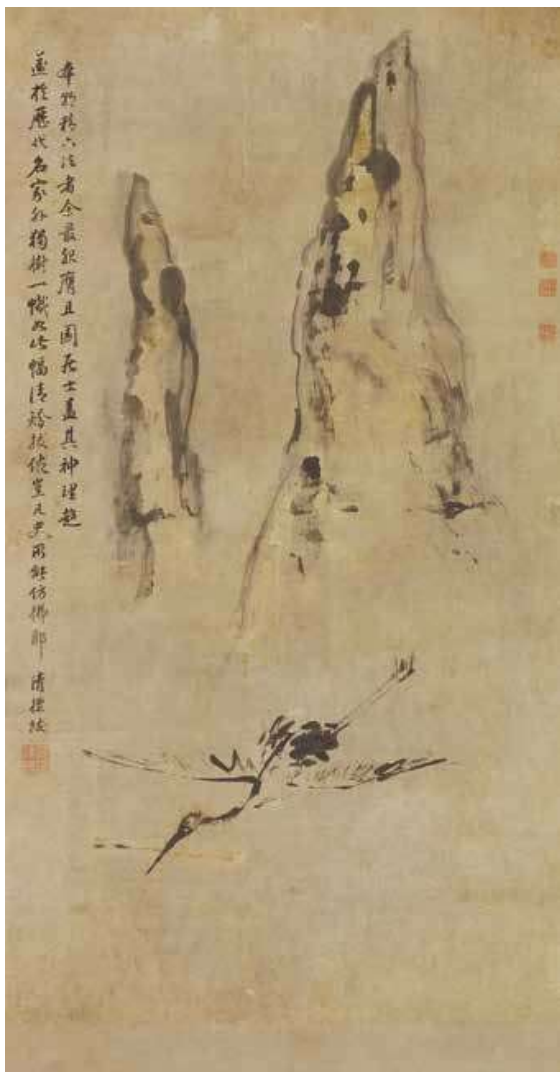 本朝精六法者余最服膺且園居士蓋其神理超
於歷代名家外獨樹一幟如此幅清矯拔俗豈凡所能仿彿耶 清標跋